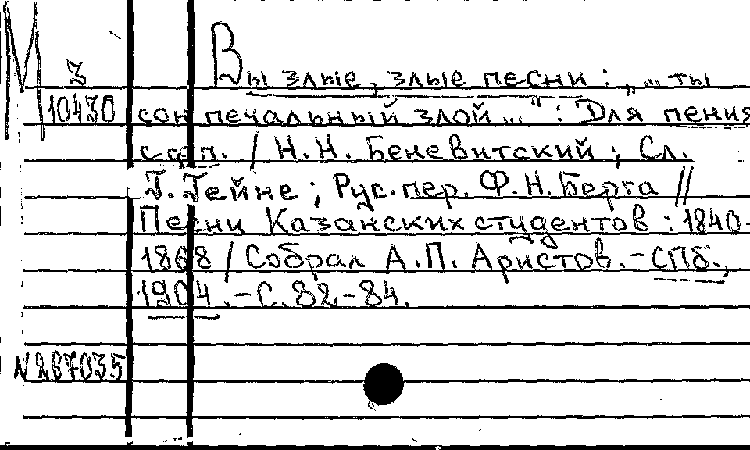 М З
10430
Вы злые, злые песни: „... ты
сон печальный злой...“: Для пения
с фп. / Н.Н. Беневитский; Сл.
Г. Гейне; Рус. пер. Ф.Н. Берга //
Песни Казанских студентов: 1840-
1868 / Собрал А.П. Аристов. - СПб.,
1904. - С. 82-84.
N 267035